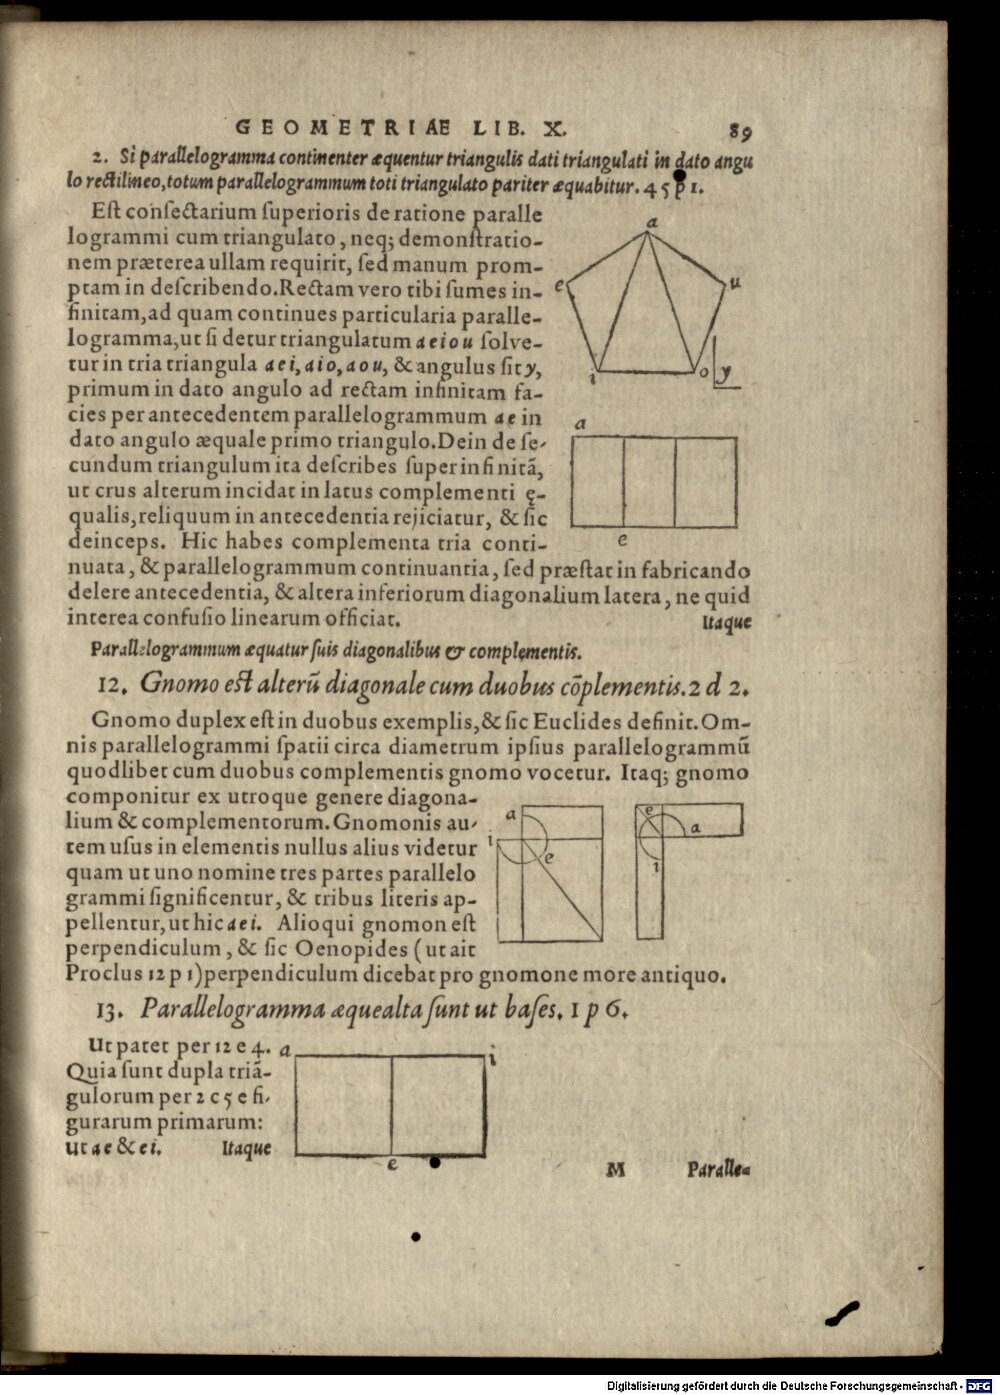 GEOMETRIAE LIB. X. 89
2. Si parallelogramma continenter æquentur triangulis dati triangulati in dato angu
lo rectilineo, totum parallelogrammum toti triangulato pariter æquabitur. 45 p 1.
Eſt conſectarium ſuperioris de ratione paralle
logrammi cum triangulato, neq; demonſtratio-
nem præterea ullam requirit, ſed manum prom-
ptam in deſcribendo. Rectam vero tibi ſumes in-
finitam, ad quam continues particularia paralle-
logramma, ut ſi detur triangulatum aeiou ſolve-
tur in tria triangula aei, aio, aou, & angulus ſit y,
primum in dato angulo ad rectam infinitam fa-
cies per antecedentem parallelogrammum ae in
dato angulo æquale primo triangulo. Dein de ſe-
cundum triangulum ita deſcribes ſuper infinitã,
ut crus alterum incidat in latus complementi ę-
qualis, reliquum in antecedentia rejiciatur, & ſic
deinceps. Hic habes complementa tria conti-
nuata, & parallelogrammum continuantia, ſed præſtat in fabricando
delere antecedentia, & altera inferiorum diagonalium latera, ne quid
interea confuſio linearum officiat. Itaque
a
e
u
i
o
y
a
e
Parallelogrammum æquatur ſuis diagonalibus & complementis.
12. Gnomo eſt alterũ diagonale cum duobus cõplementis. 2 d 2.
Gnomo duplex eſt in duobus exemplis, & ſic Euclides definit. Om-
nis parallelogrammi ſpatii circa diametrum ipſius parallelogrammũ
quodlibet cum duobus complementis gnomo vocetur. Itaq; gnomo
componitur ex utroque genere diagona-
lium & complementorum. Gnomonis au-
tem uſus in elementis nullus alius videtur
quam ut uno nomine tres partes parallelo
grammi ſignificentur, & tribus literis ap-
pellentur, ut hic aei. Alioqui gnomon eſt
perpendiculum, & ſic Oenopides (ut ait
Proclus 12 p 1) perpendiculum dicebat pro gnomone more antiquo.
a
i
e
e
a
i
13. Parallelogramma æquealta ſunt ut baſes. 1 p 6.
Ut patet per 12 e 4.
Quia ſunt dupla triã-
gulorum per 2 c 5 e fi-
gurarum primarum:
ut ae & ei. Itaque
a
i
e
M Paralle-
Digitalisierung gefördert durch die Deutsche Forschungsgemeinschaft - DFG